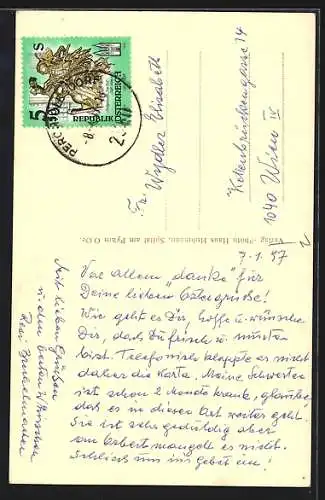 5 S
REPUBLIK ÖSTERREICH
PERCHTOLDSDORF
Fr. Wydler Elisabeth
Kettenbrückengasse 14
1040 Wien IV
Verlag-Photo Hans Spital am Pyhrn O.Oe.
7.1.97
Vor allem "danke" für
Deine lieben
Wie geht es Dir, hoffe u. wünsche
Dir, dass Du frisch u. munter
bist. Telefonisch klappte es nicht
daher die Karte. Meine Schwester
ist schon 2 Monate krank, glaube
dass es in dieser Art weiter geht.
Sie ist sehr geduldig aber
am mangelt es nicht.
Schliess uns ins Gebet ein!
Mit lieben Grüßen
u. den besten Wünschen
Resi